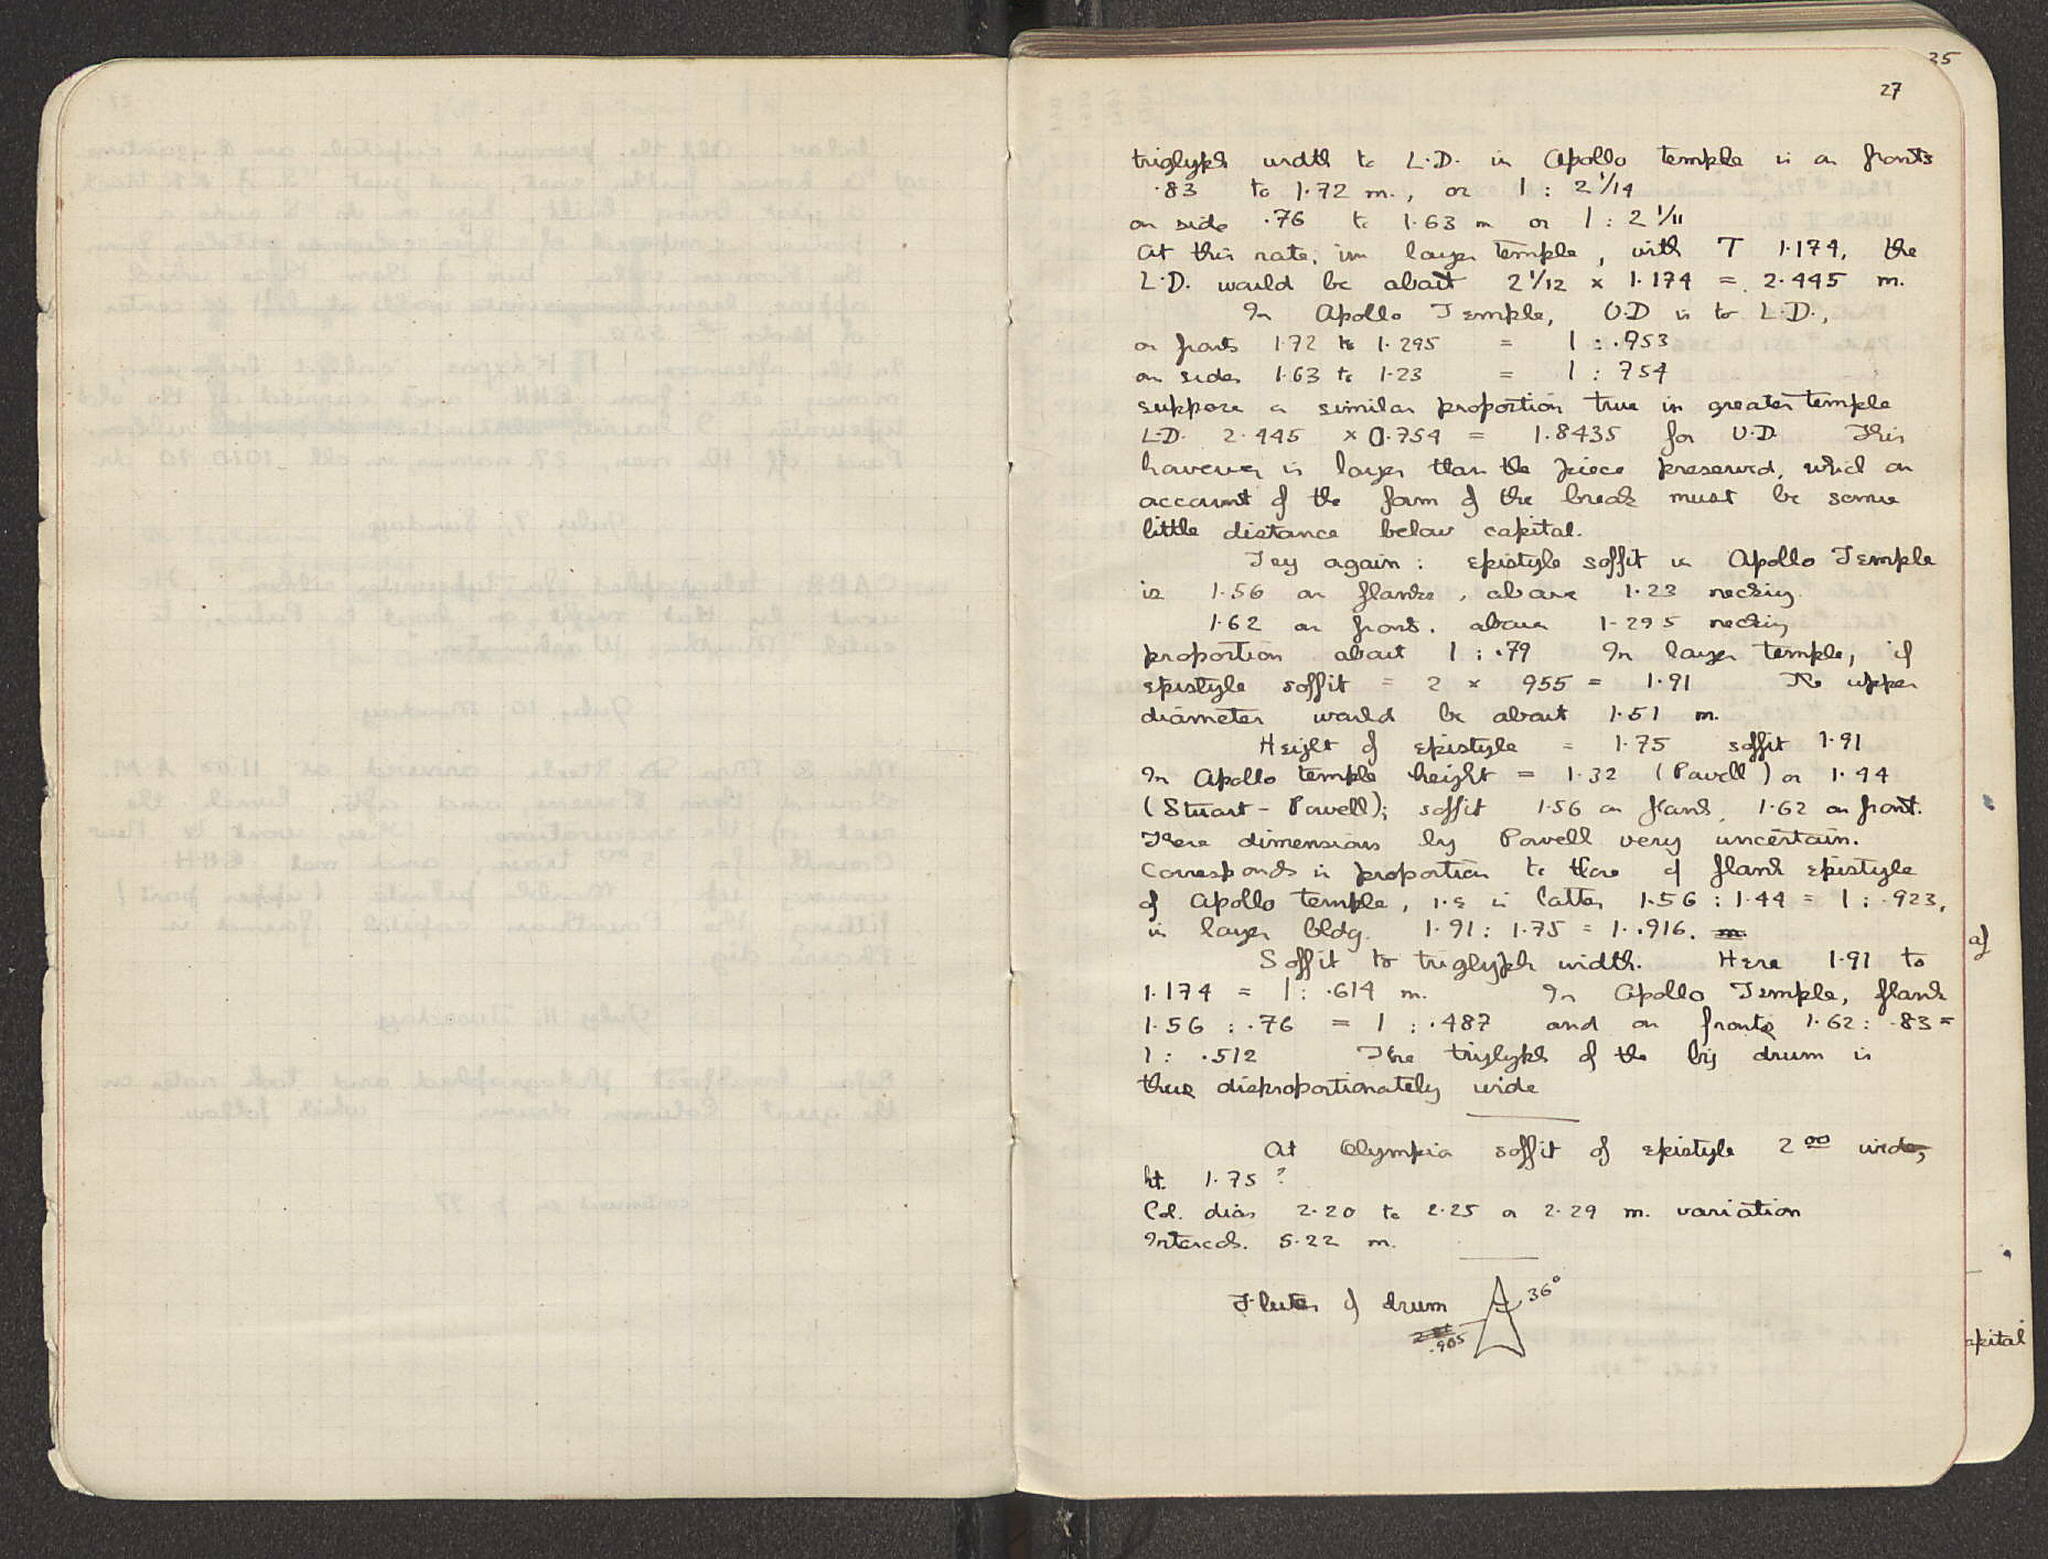 35
27
triglyph width to L.D. in Apollo temple is on fronts
.83 to 1.72 m., or 1 : 2 1/14
on side .76 to 1.63 m or 1 : 2 1/11
At this rate, in larger temple, with T 1.174, the
L.D. would be about 2 1/12 x 1.174 = 2.445 m.
In Apollo Temple, U.D is to L.D.,
on fronts 1.72 to 1.295 = 1 : .953
on sides 1.63 to 1.23 = 1 : 754
suppose a similar proportion true in greater temple
L.D. 2.445 x 0.754 = 1.8435 for U.D. This
however is larger than the piece preserved, which on
account of the form of the break must be some
little distance below capital.
Try again : epistyle soffit in Apollo Temple
is 1.56 on flanks, above 1.23 necking
1.62 on front. above 1.295 necking
proportion about 1 : .79 In larger temple, if
epistyle soffit = 2 x 955 = 1.91 The upper
diameter would be about 1.51 m.
Height of epistyle = 1.75 soffit 1.91
In Apollo temple height = 1.32 (Powell) or 1.44
(Stuart - Powell); soffit 1.56 on flank, 1.62 on front.
These dimensions by Powell very uncertain.
Corresponds in proportion to those of flank epistyle
of Apollo temple, i.e in latter 1.56 : 1.44 = 1 : .923,
in larger bldg. 1.91 : 1.75 = 1 . .916.
Soffit to triglyph width. Here 1.91 to
1.174 = 1 : .614 m. In Apollo Temple, flank
1.56 : .76 = 1 : .487 and on fronts 1.62 : .83 =
1 : .512 The triglyph of the big drum is
thus disproportionately wide
At Olympia soffit of epistyle 2 00 wide,
ht. 1.75 ?
Col. diam 2.20 to 2.25 or 2.29 m. variation
Intercol. 5.22 m.
Flutes of drum 36°
.905
of
apital